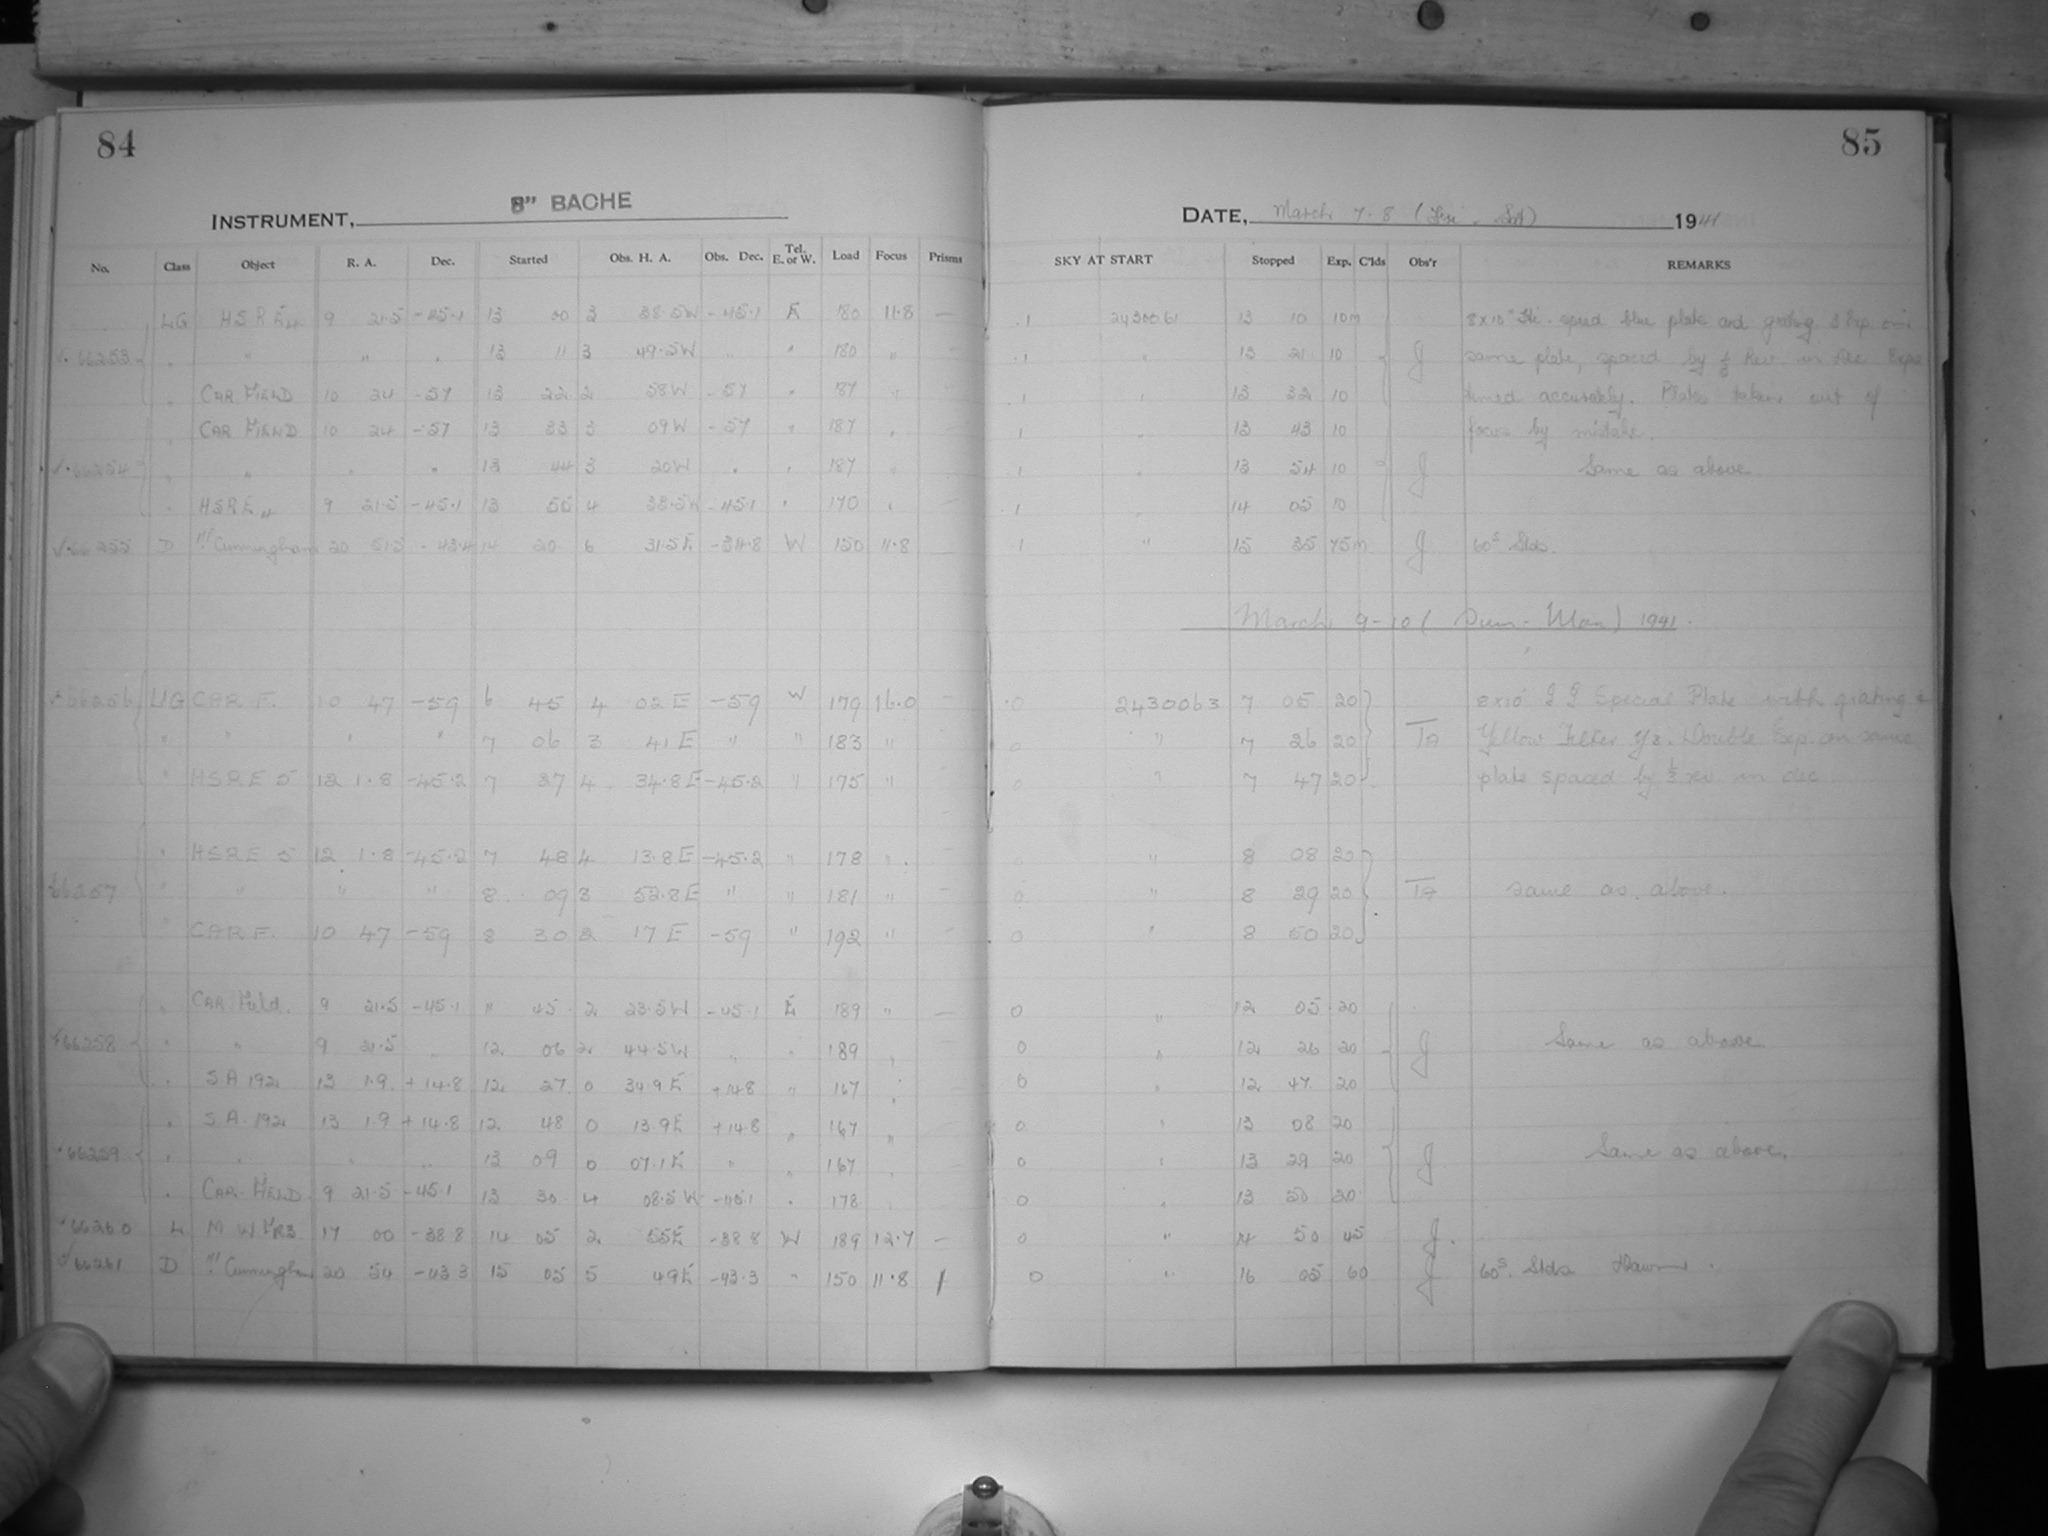 84
85
INSTRUMENT, 8" BACHE
DATE, March 7-8 (Fri - Sat) 1941
No. Class Object R. A. Dec. Started Obs. H. A. Obs. Dec. Tel. E. or W. Load Focus Prisms SKY AT START Stopped Exp. C'lds Obs'r REMARKS
LG HSRE 9 21.5 -45.1 13 00 3 38.5W -45.1 E 180 11.8 — 1 2430061 13 10 10m 8x10" Hi-speed blue plate and grating 3 Exp on
66253 " " " 13 11 3 49.5W " " 180 " 1 " 13 21 10 J same plate, spaced by ½ Rev in Dec Exps
CAR FIELD 10 24 -57 13 22 2 58W -57 " 187 " 1 " 13 32 10 timed accurately. Plates taken out of
CAR FIELD 10 24 -57 13 33 3 09W -57 " 187 " 1 " 13 43 10 focus by mistake.
66254 " " " 13 44 3 20W " " 187 " 1 " 13 54 10 J Same as above
HSRE 9 21.5 -45.1 13 55 4 38.5W -45.1 " 170 " 1 " 14 05 10
66255 D Cunningham 20 51.5 -43.4 14 20 6 31.5E W 150 11.8 1 " 15 35 75m J 60s Stds.
March 9-10 (Sun-Mon) 1941.
66256 LIG CAR F. 10 47 -59 6 45 4 02 E -59 W 179 16.0 0 2430063 7 05 20 Special Plate with grating &
" " " " 7 06 3 41 E " " 183 " 0 " 7 26 20 TA Yellow Filter Y2. Double Exp. on same
" HSRE 5 12 1.8 -45.2 7 27 4 34.8 E -45.2 " 175 " 0 " 7 47 20 plate spaced by ½ rev in dec
" HSRE 5 12 1.8 -45.2 7 48 4 13.8 E -45.2 " 178 " 0 " 8 08 20
66257 " " " " 8 09 3 52.8 E " " 181 " 0 " 8 29 20 TA same as above.
" CAR F. 10 47 -59 8 30 2 17 E -59 " 192 " 0 " 8 50 20
" CAR Field. 9 21.5 -45.1 11 45 2 23.5W -45.1 E 189 " — 0 " 12 05 20
66258 " " 9 21.5 " 12 06 2 44.5W " " 189 " 0 " 12 26 20 J Same as above
" SA 192 13 1.9 +14.8 12 27 0 34.9E +14.8 " 167 " 0 " 12 47 20
" S.A. 192 13 1.9 +14.8 12 48 0 13.9E +14.8 " 167 " 0 " 13 08 20
66259 " " " " 13 09 0 07.1E " " 167 " 0 " 13 29 20 J Same as above.
" CAR. FIELD 9 21.5 -45.1 13 30 4 08.5W -45.1 " 178 " 0 " 13 50 20
66260 L 17 00 -38.8 14 05 2 55E -38.8 W 189 12.7 — 0 " 14 50 45 J.
66261 D Cunningham 20 54 -43.3 15 05 5 49E -43.3 " 150 11.8 0 " 16 05 60 J 60s. Stds Dawn.